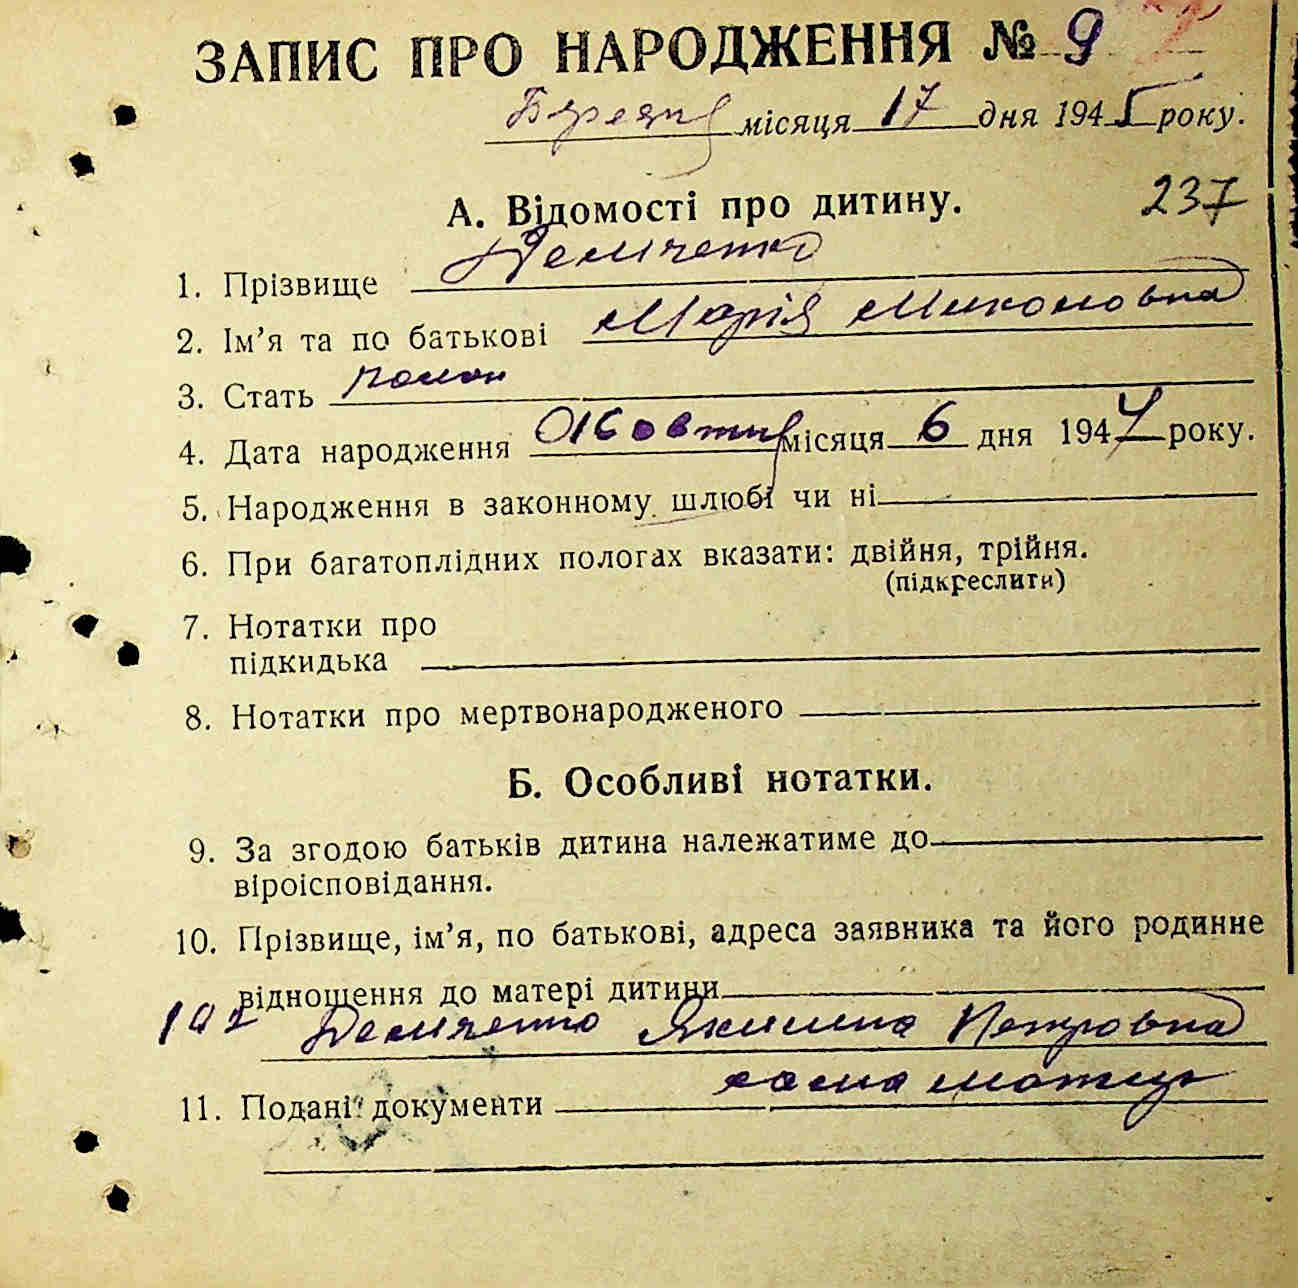 ЗАПИС ПРО НАРОДЖЕННЯ № 9
Березня місяця 17 дня 1945 року.
А. Відомості про дитину.
237
1. Прізвище Демченко
2. Ім'я та по батькові Марія Миконовна
3. Стать
4. Дата народження місяця 6 дня 1944 року.
5. Народження в законному шлюбі чи ні
6. При багатоплідних пологах вказати: двійня, трійня.
(підкреслити)
7. Нотатки про
підкидька
8. Нотатки про мертвонародженого
Б. Особливі нотатки.
9. За згодою батьків дитина належатиме до
віроісповідання.
10. Прізвище, ім'я, по батькові, адреса заявника та його родинне
відношення до матері дитини
Демченко Якилина Петровна
сама матір
11. Подані документи